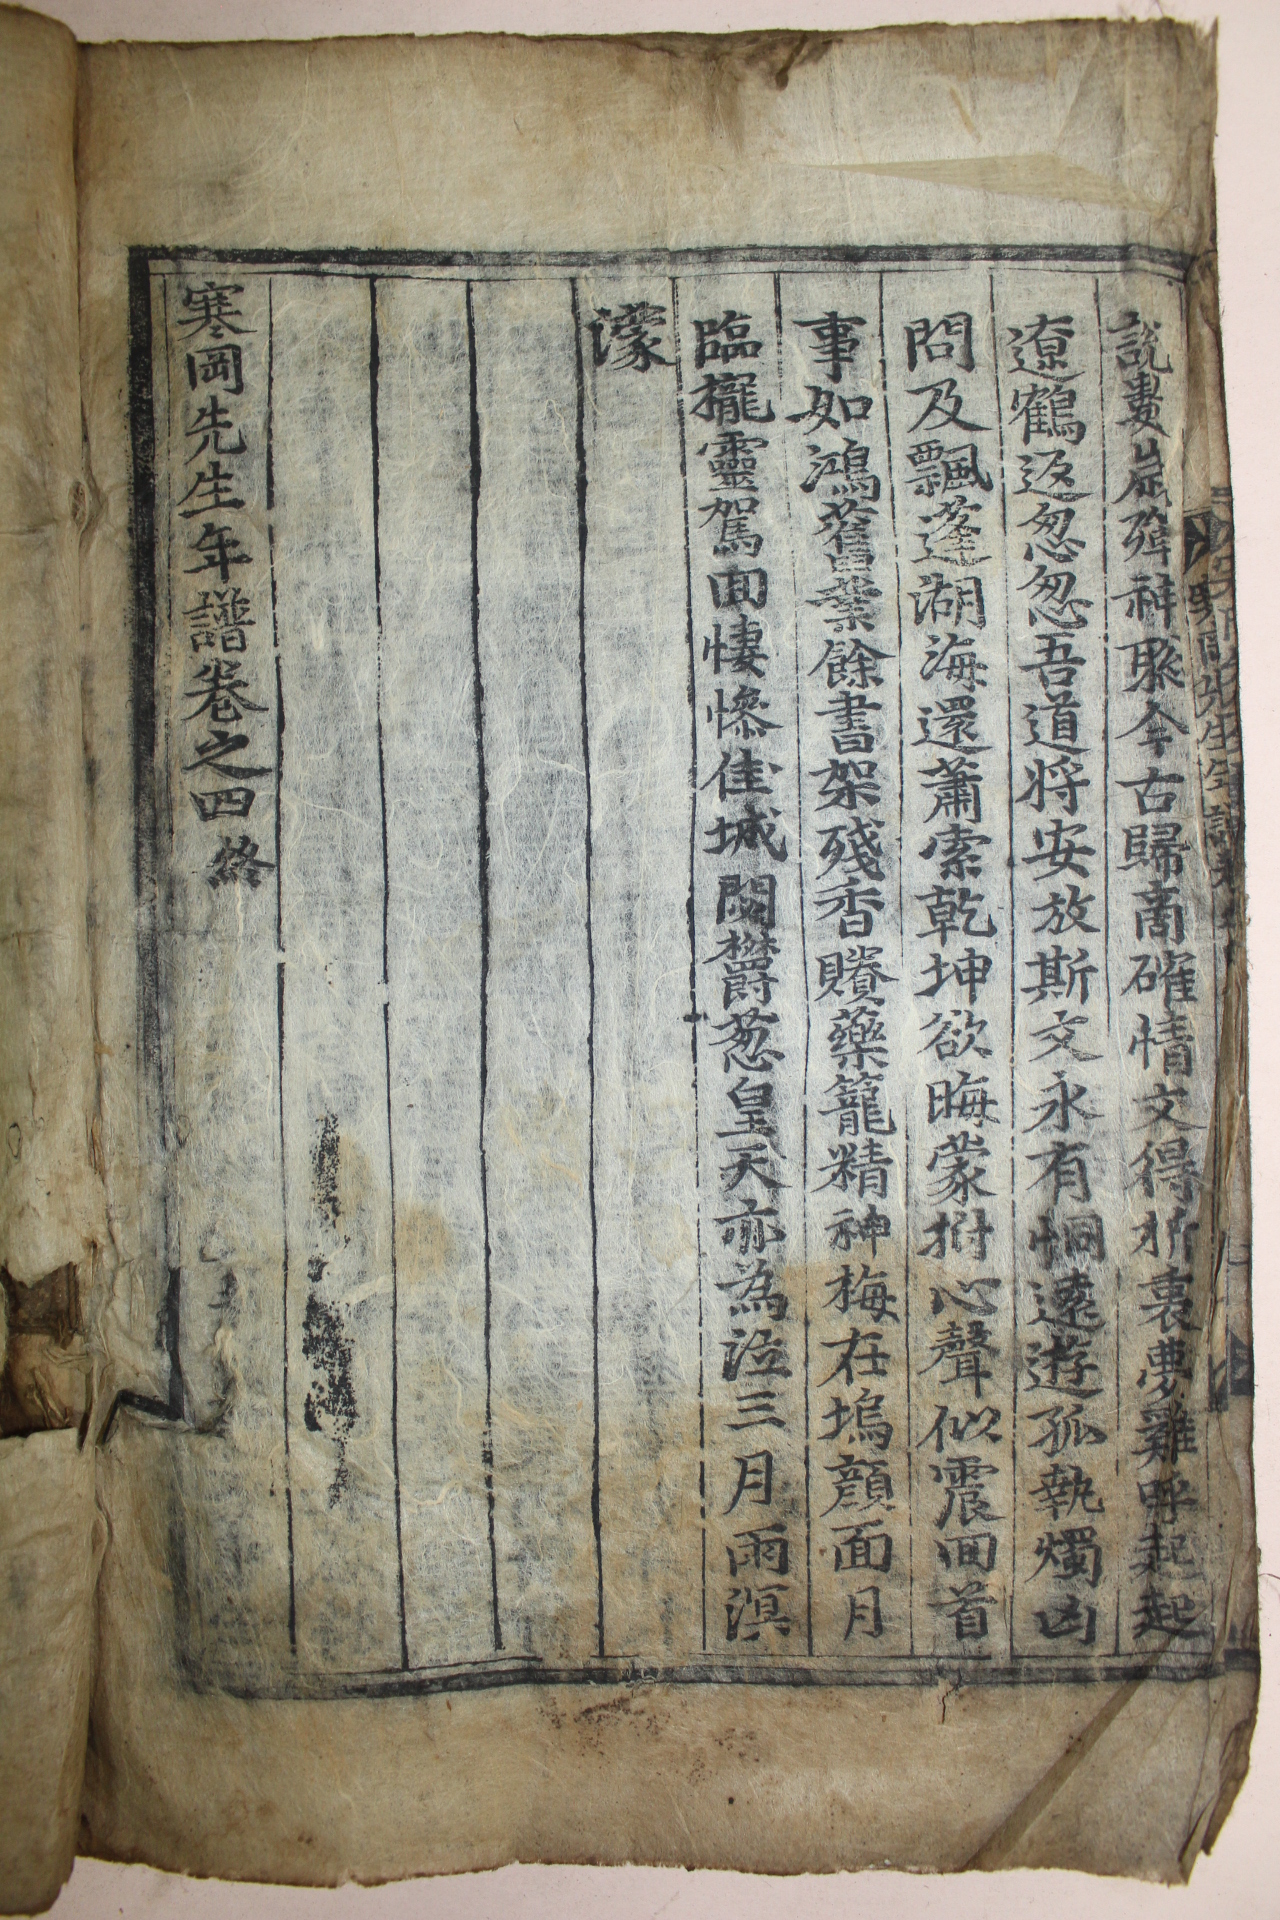 說數 殫神聚今古歸商確情文得折衷夢雞呼起起
遼鶴返忽忽吾道將安放斯文永有恫遠遊孤執燭凶
問及飄蓬湖海還蕭索乾坤欲晦蒙拊心聲似震回首
事如鴻舊業餘書架殘香賸藥籠精神梅在塢顔面月
臨攏靈駕回悽慘佳城閟欝葱皇天亦為泣三月雨溟
濛
寒岡先生年譜卷之四終